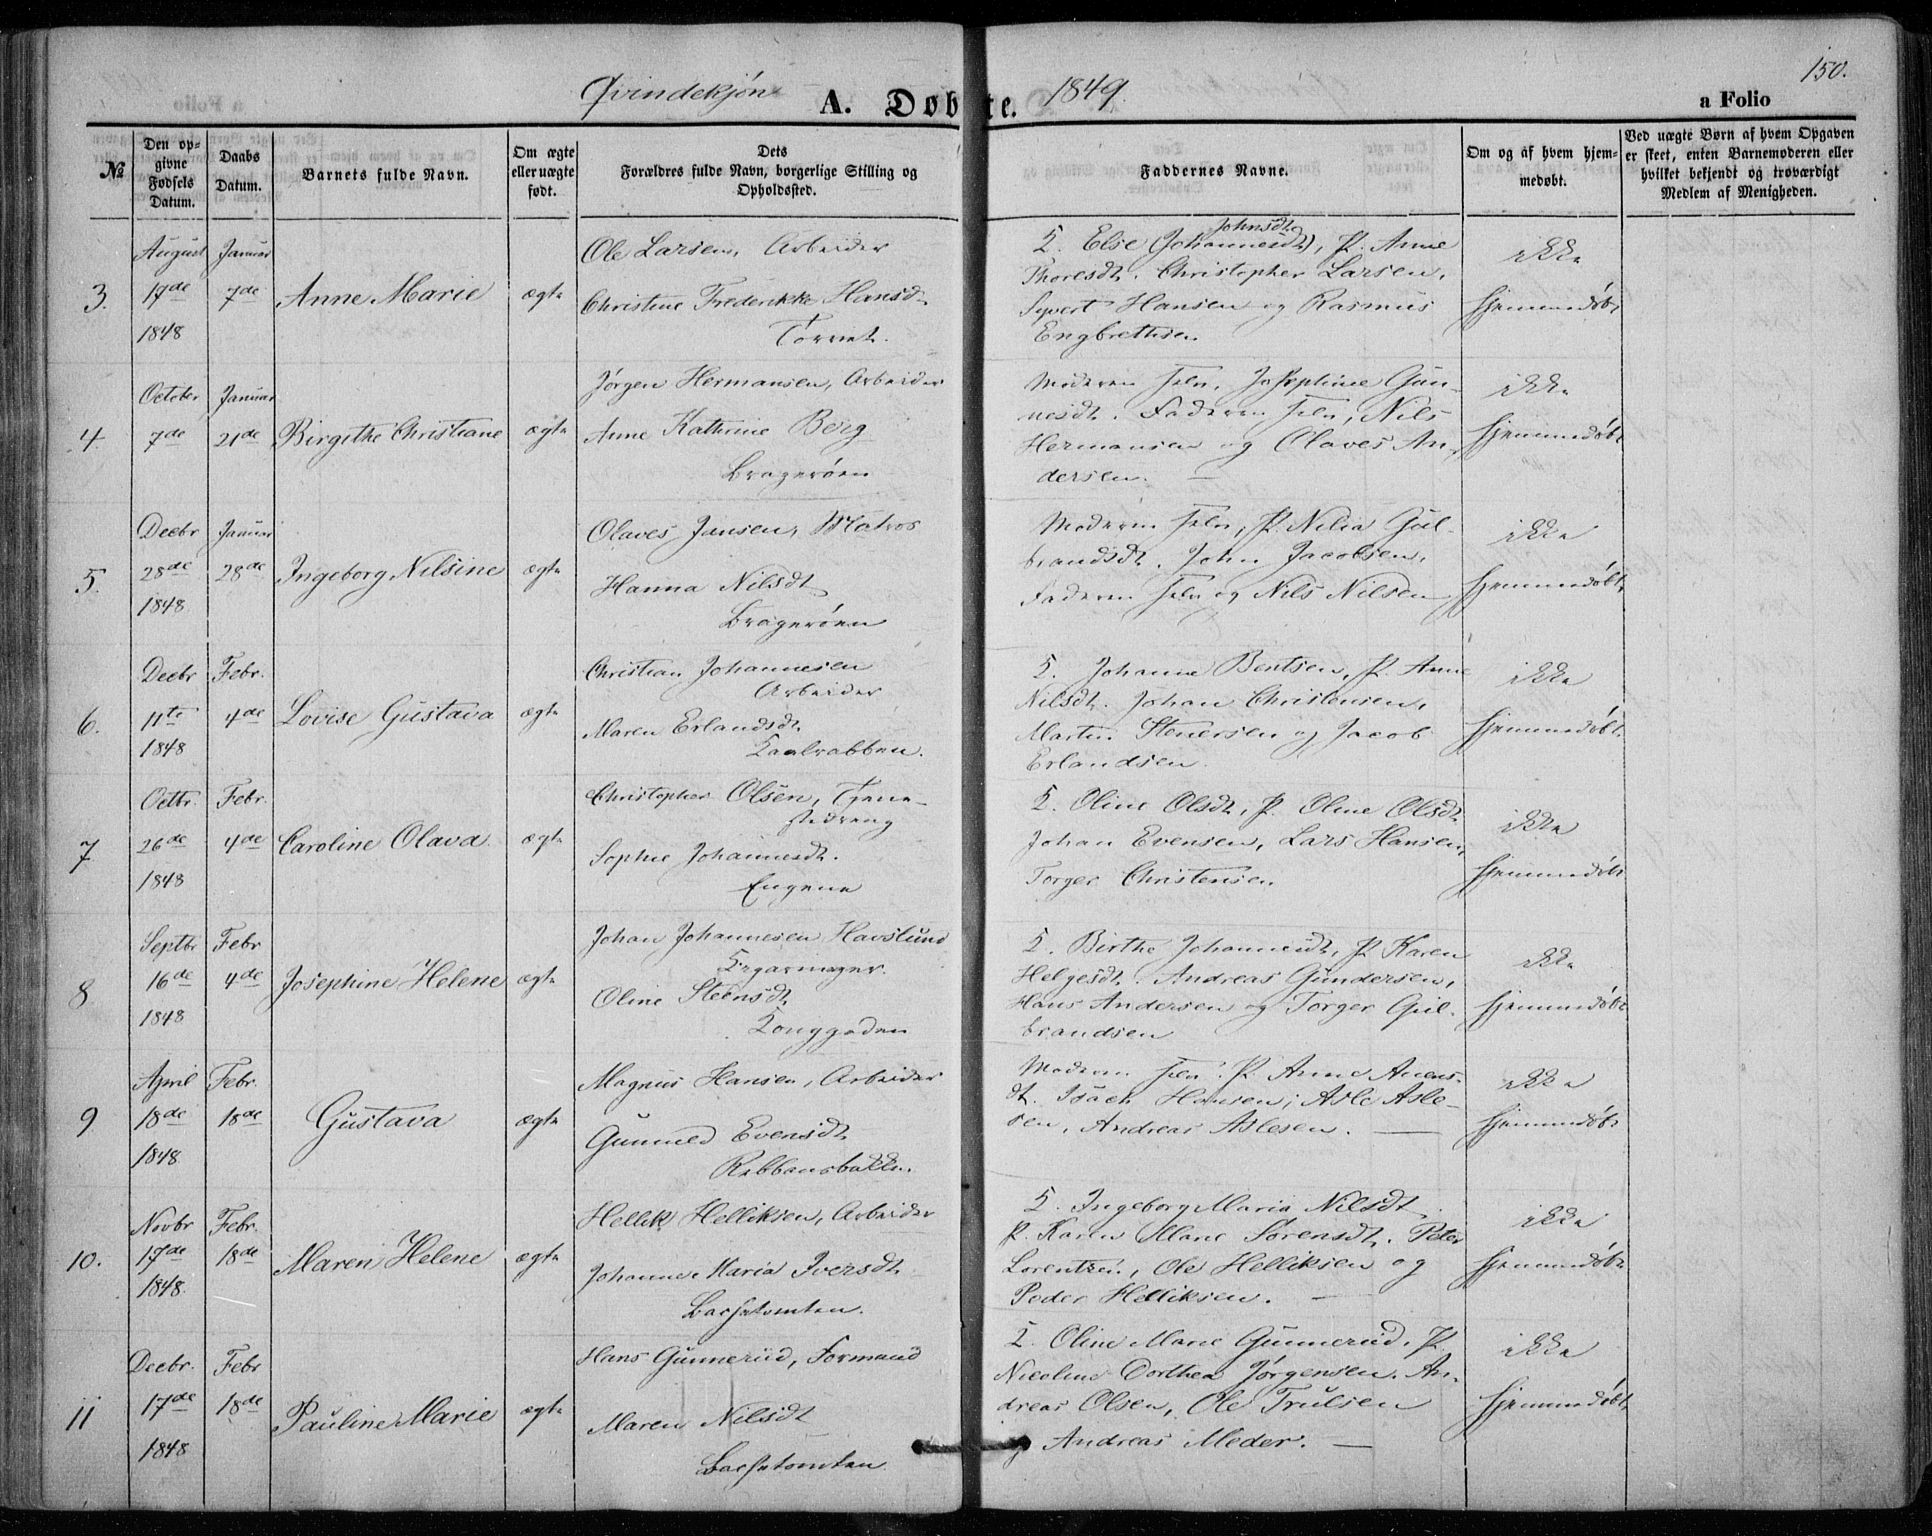 150.
Qvindekjøn A. Døbte. 1849. a Folio
№
Den opgivne Fødsels Datum.
Daabs Datum.
Barnets fulde Navn.
Om ægte eller uægte født.
Dets Forældres fulde Navn, borgerlige Stilling og Opholdssted.
Faddernes Navne.
Om og af hvem hjemmedøbt.
Ved uægte Børn af hvem Opgaven er skeet, enten Barnemoderen eller hvilket bekjendt og troværdigt Medlem af Menigheden.
3.
August 19de 1848
Januar 7de
Anne Marie
ægte
Ole Larsen, Arbeider
Christine Frederikke Hansd.
Torvet.
Q. Else (Johannesdt), Johnsdt P. Anne
Thoresdt. Christopher Larsen,
Syvert Hansen og Rasmus
Engbrethsen
ikke
hjemmedøbt
4.
October 7de
Januar 21de
Birgithe Christiane
ægte
Jørgen Hermansen, Arbeider
Anne Kathrine Berg
Bragerøen
Moderen selv, Josephine Gun-
nesdt. Faderen selv, Nils
Hermansen og Olaves An-
dersen.
ikke
hjemmedøbt
5.
Decbr 28de 1848
Januar 28de
Ingeborg Nilsine
ægte
Olaves Jansen, Matros
Hanna Nilsdt
Bragerøen
Moderen selv, P. Nilia Gul-
brandsdt. John Jacobsen,
Faderen selv og Nils Nilsen
ikke
hjemmedøbt
6.
Decbr 11te 1848
Febr. 4de
Lovise Gustava
ægte
Christian Johannesen
Arbeider
Maren Erlandsdt
Kaalrabben.
Q. Johanne Bentsen, P. Anne
Nilsdt. Johan Christensen,
Martin Stenersen og Jacob
Erlandsen.
ikke
hjemmedøbt
7
Octbr. 26de 1848
Febr. 4de
Caroline Olava
ægte
Christopher Olsen, Tjene-
stedreng
Sophie Johannesdt.
Engene
Q. Oline Olsdt, P. Oline Olsdt
Johan Evensen, Lars Hansen,
Torger Christensen
ikke
hjemmedøbt
8
Septbr 16de 1848
Febr 4de
Josephine Helene
ægte
Johan Johannesen Havslund
Cigarmager.
Oline Steensdt
Konggaden
Q. Birthe Johannesdt, P. Karen
Helgesdt. Andreas Gundersen,
Hans Andersen og Torger Gul-
brandsen
ikke
hjemmedøbt
9
April 18de 1848
Febr. 18de
Gustava
ægte
Magnus Hansen, Arbeider
Gunnild Evensdt
Rabbensbakke.
Moderen selv. P. Anne Anens-
dt. Isach Hansen, Asle Asle-
sen, Andreas Aslesen.
ikke
hjemmedøbt
10.
Novbr 17de 1848
Febr. 18de
Maren Helene
ægte
Hellik Helliksen, Arbeider
Johanne Maria Iversdt
Bachetomten.
Q. Ingeborg Maria Nilsdt
P. Karen Marie Sørensdt. Peter
Lorentzen, Ole Helliksen og
Peder Helliksen.
ikke
hjemmedøbt
11
Decbr. 17de 1848
Febr 18de
Pauline Marie
ægte
Hans Gunnerud, Formand
Maren Nilsdt
Bachetomten
Q. Oline Marie Gunnerud, P.
Nicoline Dorthea Jørgensen. An-
dreas Olsen, Ole Trulsen
og Andreas Meder.
ikke
hjemmedøbt